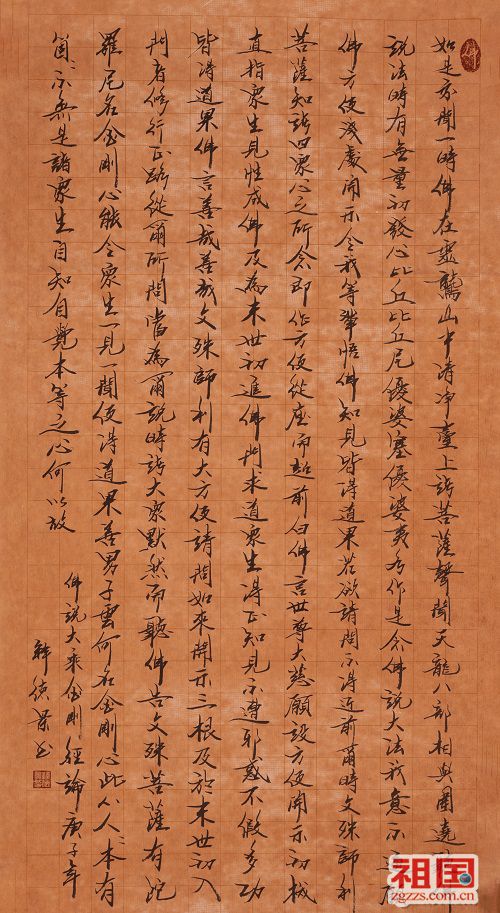 如是我聞一時佛在靈鷲山中清淨臺上諸菩薩聲聞天龍八部相與圍遶
說法時有無量初發心比丘比丘尼優婆塞優婆夷各作是念佛說大法我意不通願
佛方便淺處開示令我等輩悟佛知見皆得道果若欲請問不得近前爾時文殊師利
菩薩知諸四衆心之所念即作方便從座而起前白佛言世尊大慈願設方便開示初機
直指衆生見性成佛及為末世初進佛門求道衆生得正知見不遭邪惑不假多功
皆得道果佛言善哉善哉文殊師利有大方便請問如來開示三根及於末世初入
門者修行正路從爾所問當為爾說時諸大衆默然而聽佛告文殊菩薩有陀
羅尼名金剛心能令衆生一見一聞便得道果善男子雲何名金剛心此心人人本有
箇箇不無是諸衆生自知自覺本等之心何以故
佛說大乘金剛經論庚子年
韓德景書
祖国
zgzzs.com.cn